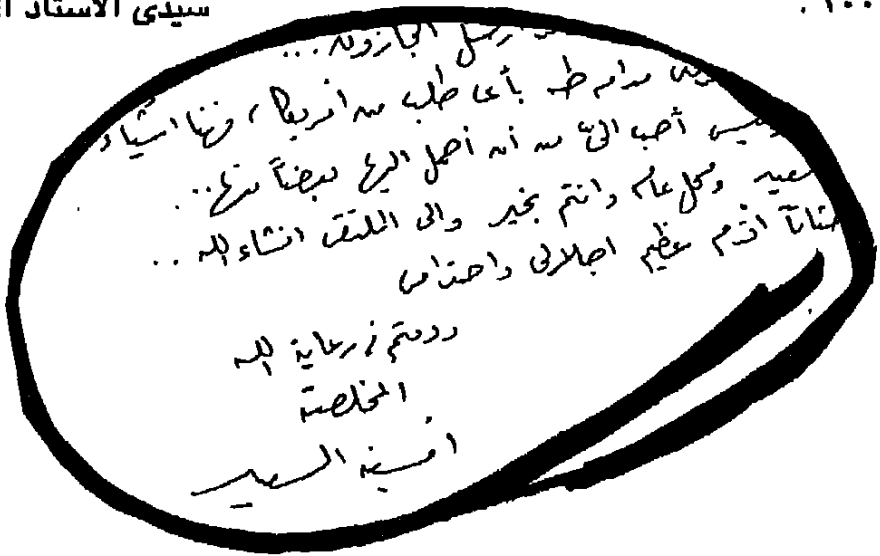 سيدى الاستاذ
١٠٠ .
رسل الجازولد ...
مدام طه بأي طلب من افريقيا ، فهنا أشياء
أحب الىّ من أن أحمل اليها بعضاً منها ...
سعيد وكل عام وانتم بخير والى الملتقى انشاء الله ..
ختاماً اقدم عظيم اجلالى واحترامى
ودمتم فى رعاية الله
المخلصة
امينة السعيد